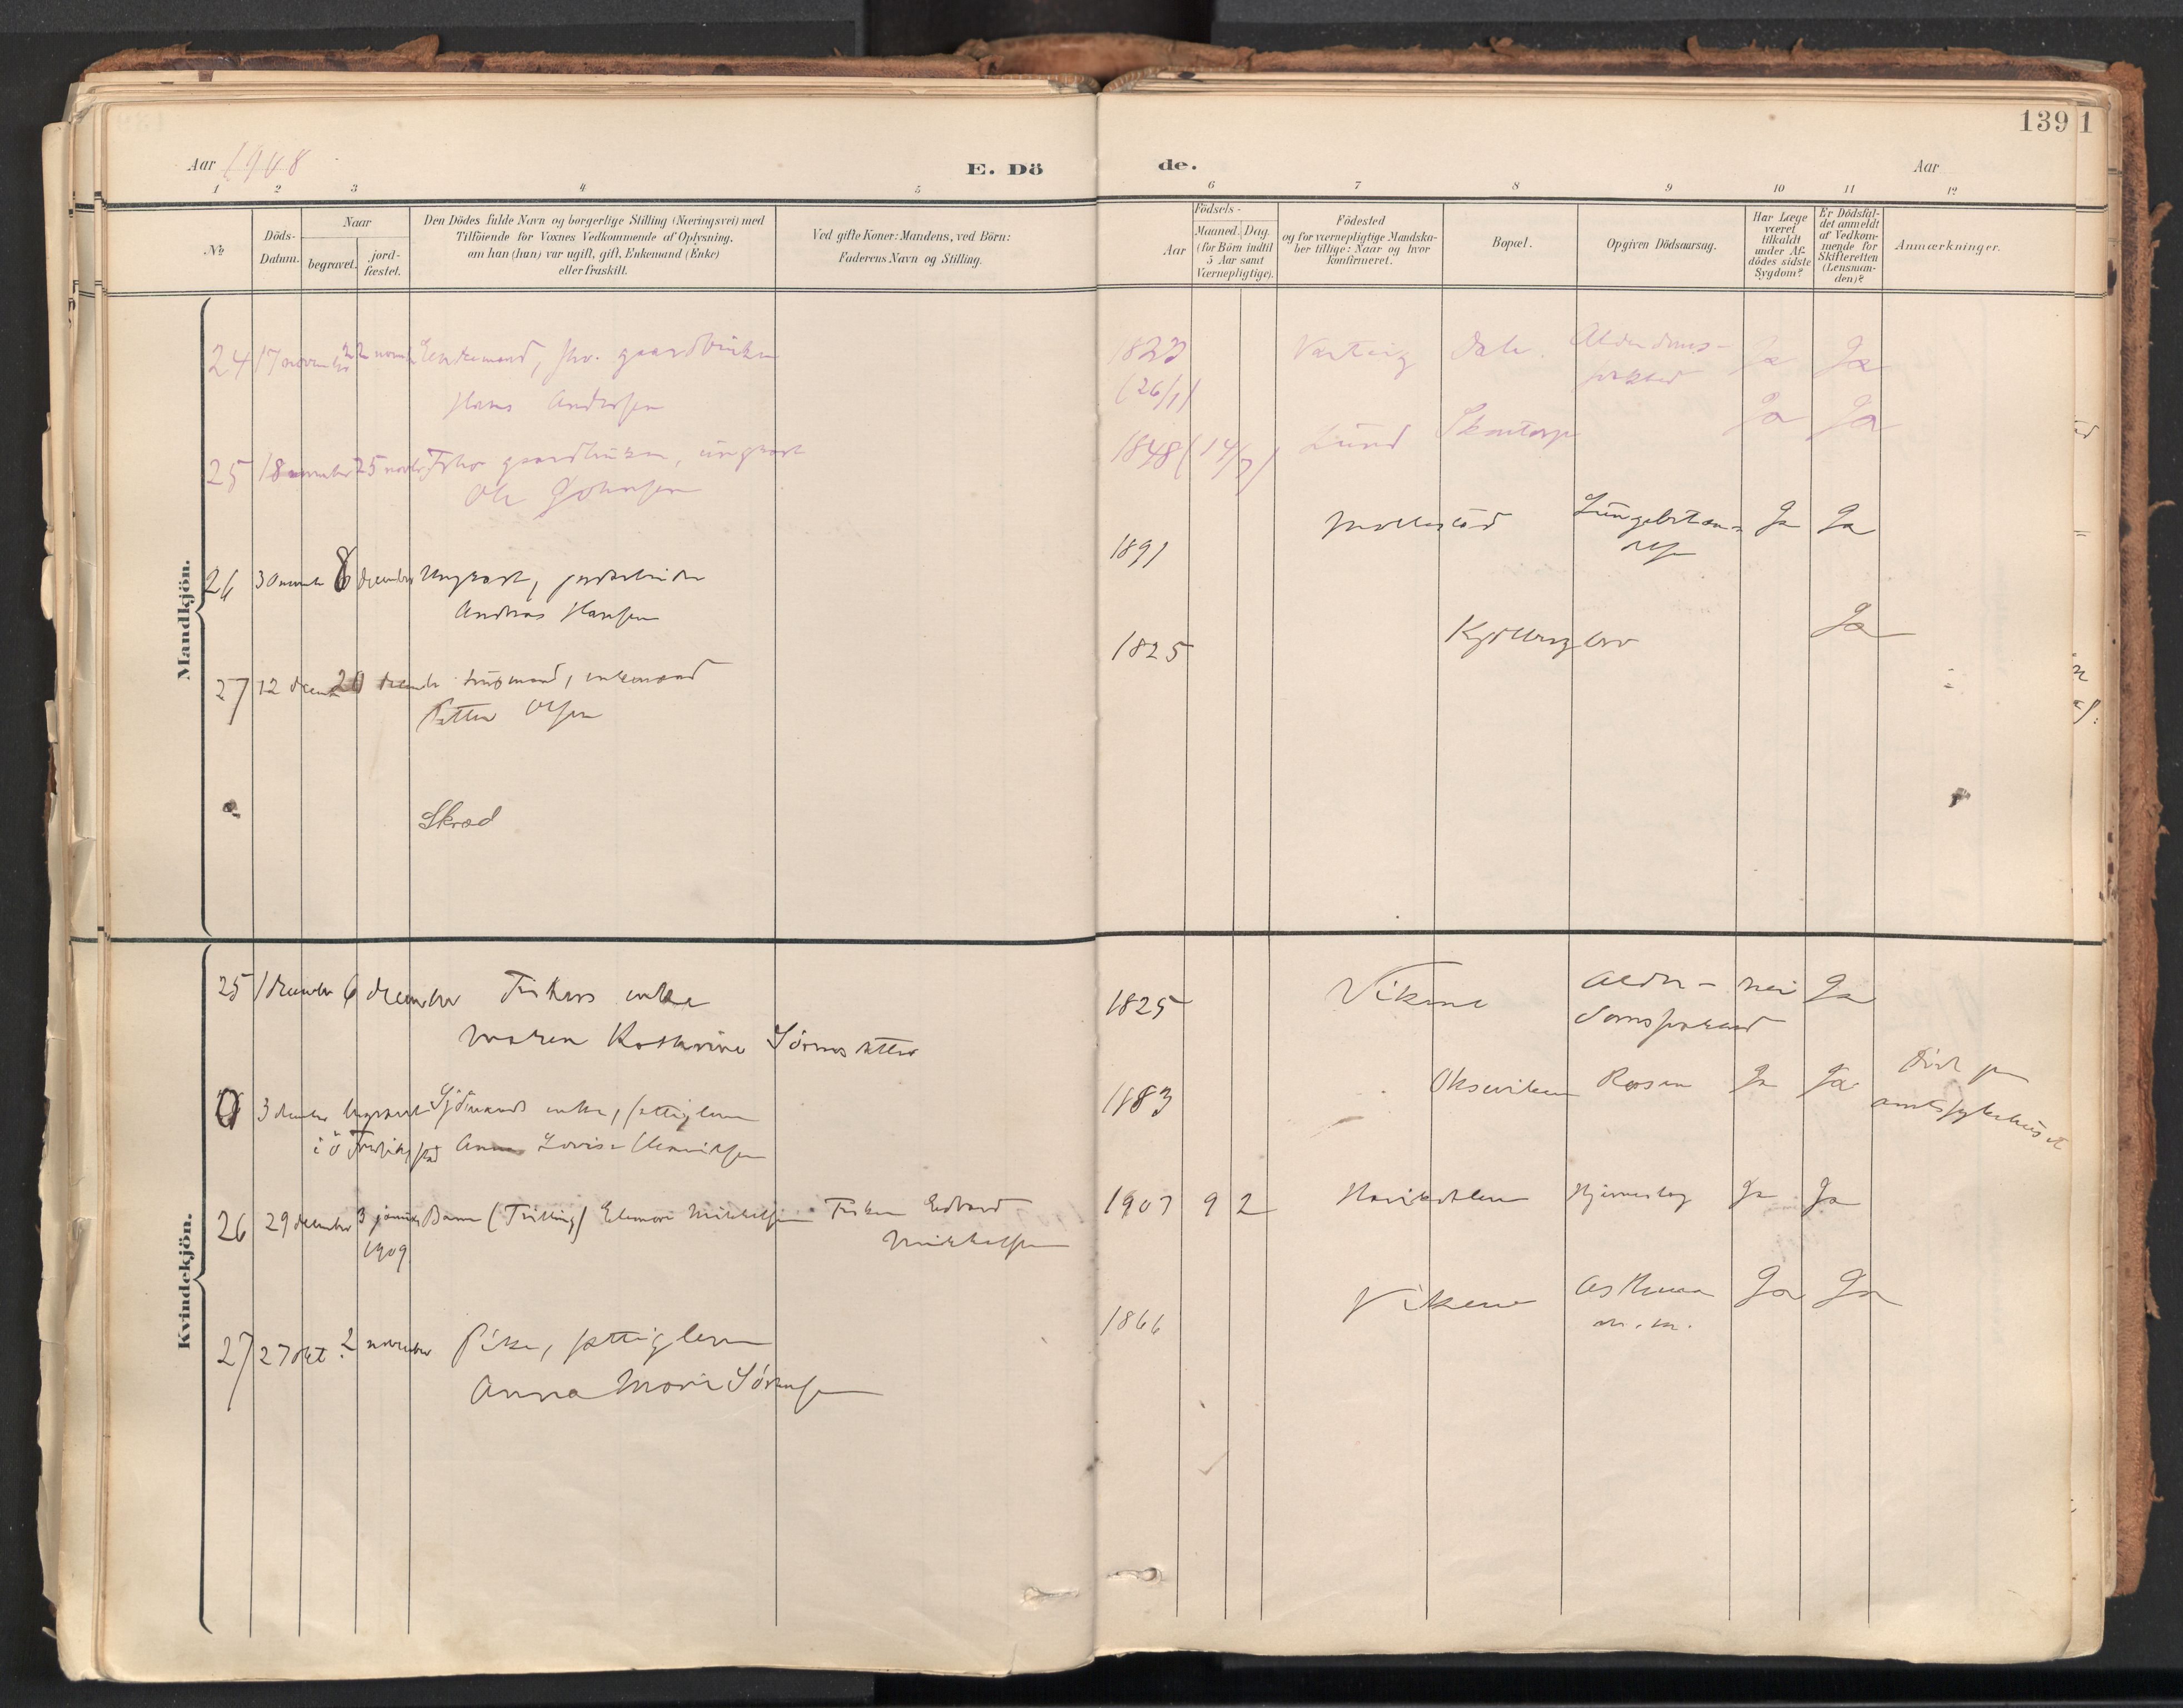 139 1
Aar 1908
E. Dö
de.
Aar
1 2 3 4 5 6 7 8 9 10 11 12
No
Döds-
Datum.
Naar
begravet.
jord-
fæstet.
Den Dödes fulde Navn og borgerlige Stilling (Næringsvei) med
Tilföiende for Voxnes Vedkommende af Oplysning,
om han (hun) var ugift, gift, Enkemand (Enke)
eller fraskilt.
Ved gifte Koner: Mandens, ved Börn:
Faderens Navn og Stilling.
Födsels-
Aar
Maaned. Dag.
(for Börn indtil
5 Aar samt
Værnepligtige).
Födested
og for værnepligtige Mandska-
ber tillige: Naar og hvor
konfirmeret.
Bopæl.
Opgiven Dödsaarsag.
Har Læge
været
tilkaldt
under Af-
dödes sidste
Sygdom?
Er Dödsfal-
det anmeldt
af Vedkom-
mende for
Skifteretten
(Lensman-
den)?
Anmærkninger.
Mandkjön.
24 17 novemb 22 novemb Enkemand, fhv. gaardbruker
Hans Andersen
1823 Varteig Dale Alderdoms- Ja Ja
(26/1)
25 18 november 25 novbr Fhv gaardbruker, ungkar
Ole Johnsen
1848 (14/7) Lund Ja Ja
26 30 novemb 8 december Ungkar,
Andreas Hansen
1891 Ja Ja
27 12 decemb 20 decemb husmand, enkemand
Petter Olsen
1825 Kjölbergbro Ja
Skrad
Kvindekjön.
25 1 december 6 december Fiskers enke
Maren Kathrine Sörensdatter
1825 Vikene Alder- nei Ja
domssvakhed
3 december begravet Sjömands enke, fattiglem
i ö Fredrikstad Anna Lovise Henriksen
1883 Okseviken Rosen Ja Ja Död paa
amtssykehuset
26 29 december 3 januar Barn (Trilling) Elenore Mikkelsen Fisker Edvard
1909 Mikkelsen
1907 9 2 Ja Ja
27 27 okt. 2 november Pike, fattiglem
Anna Marie Sörensen
1866 Vikene Asthma Ja Ja
m. m.